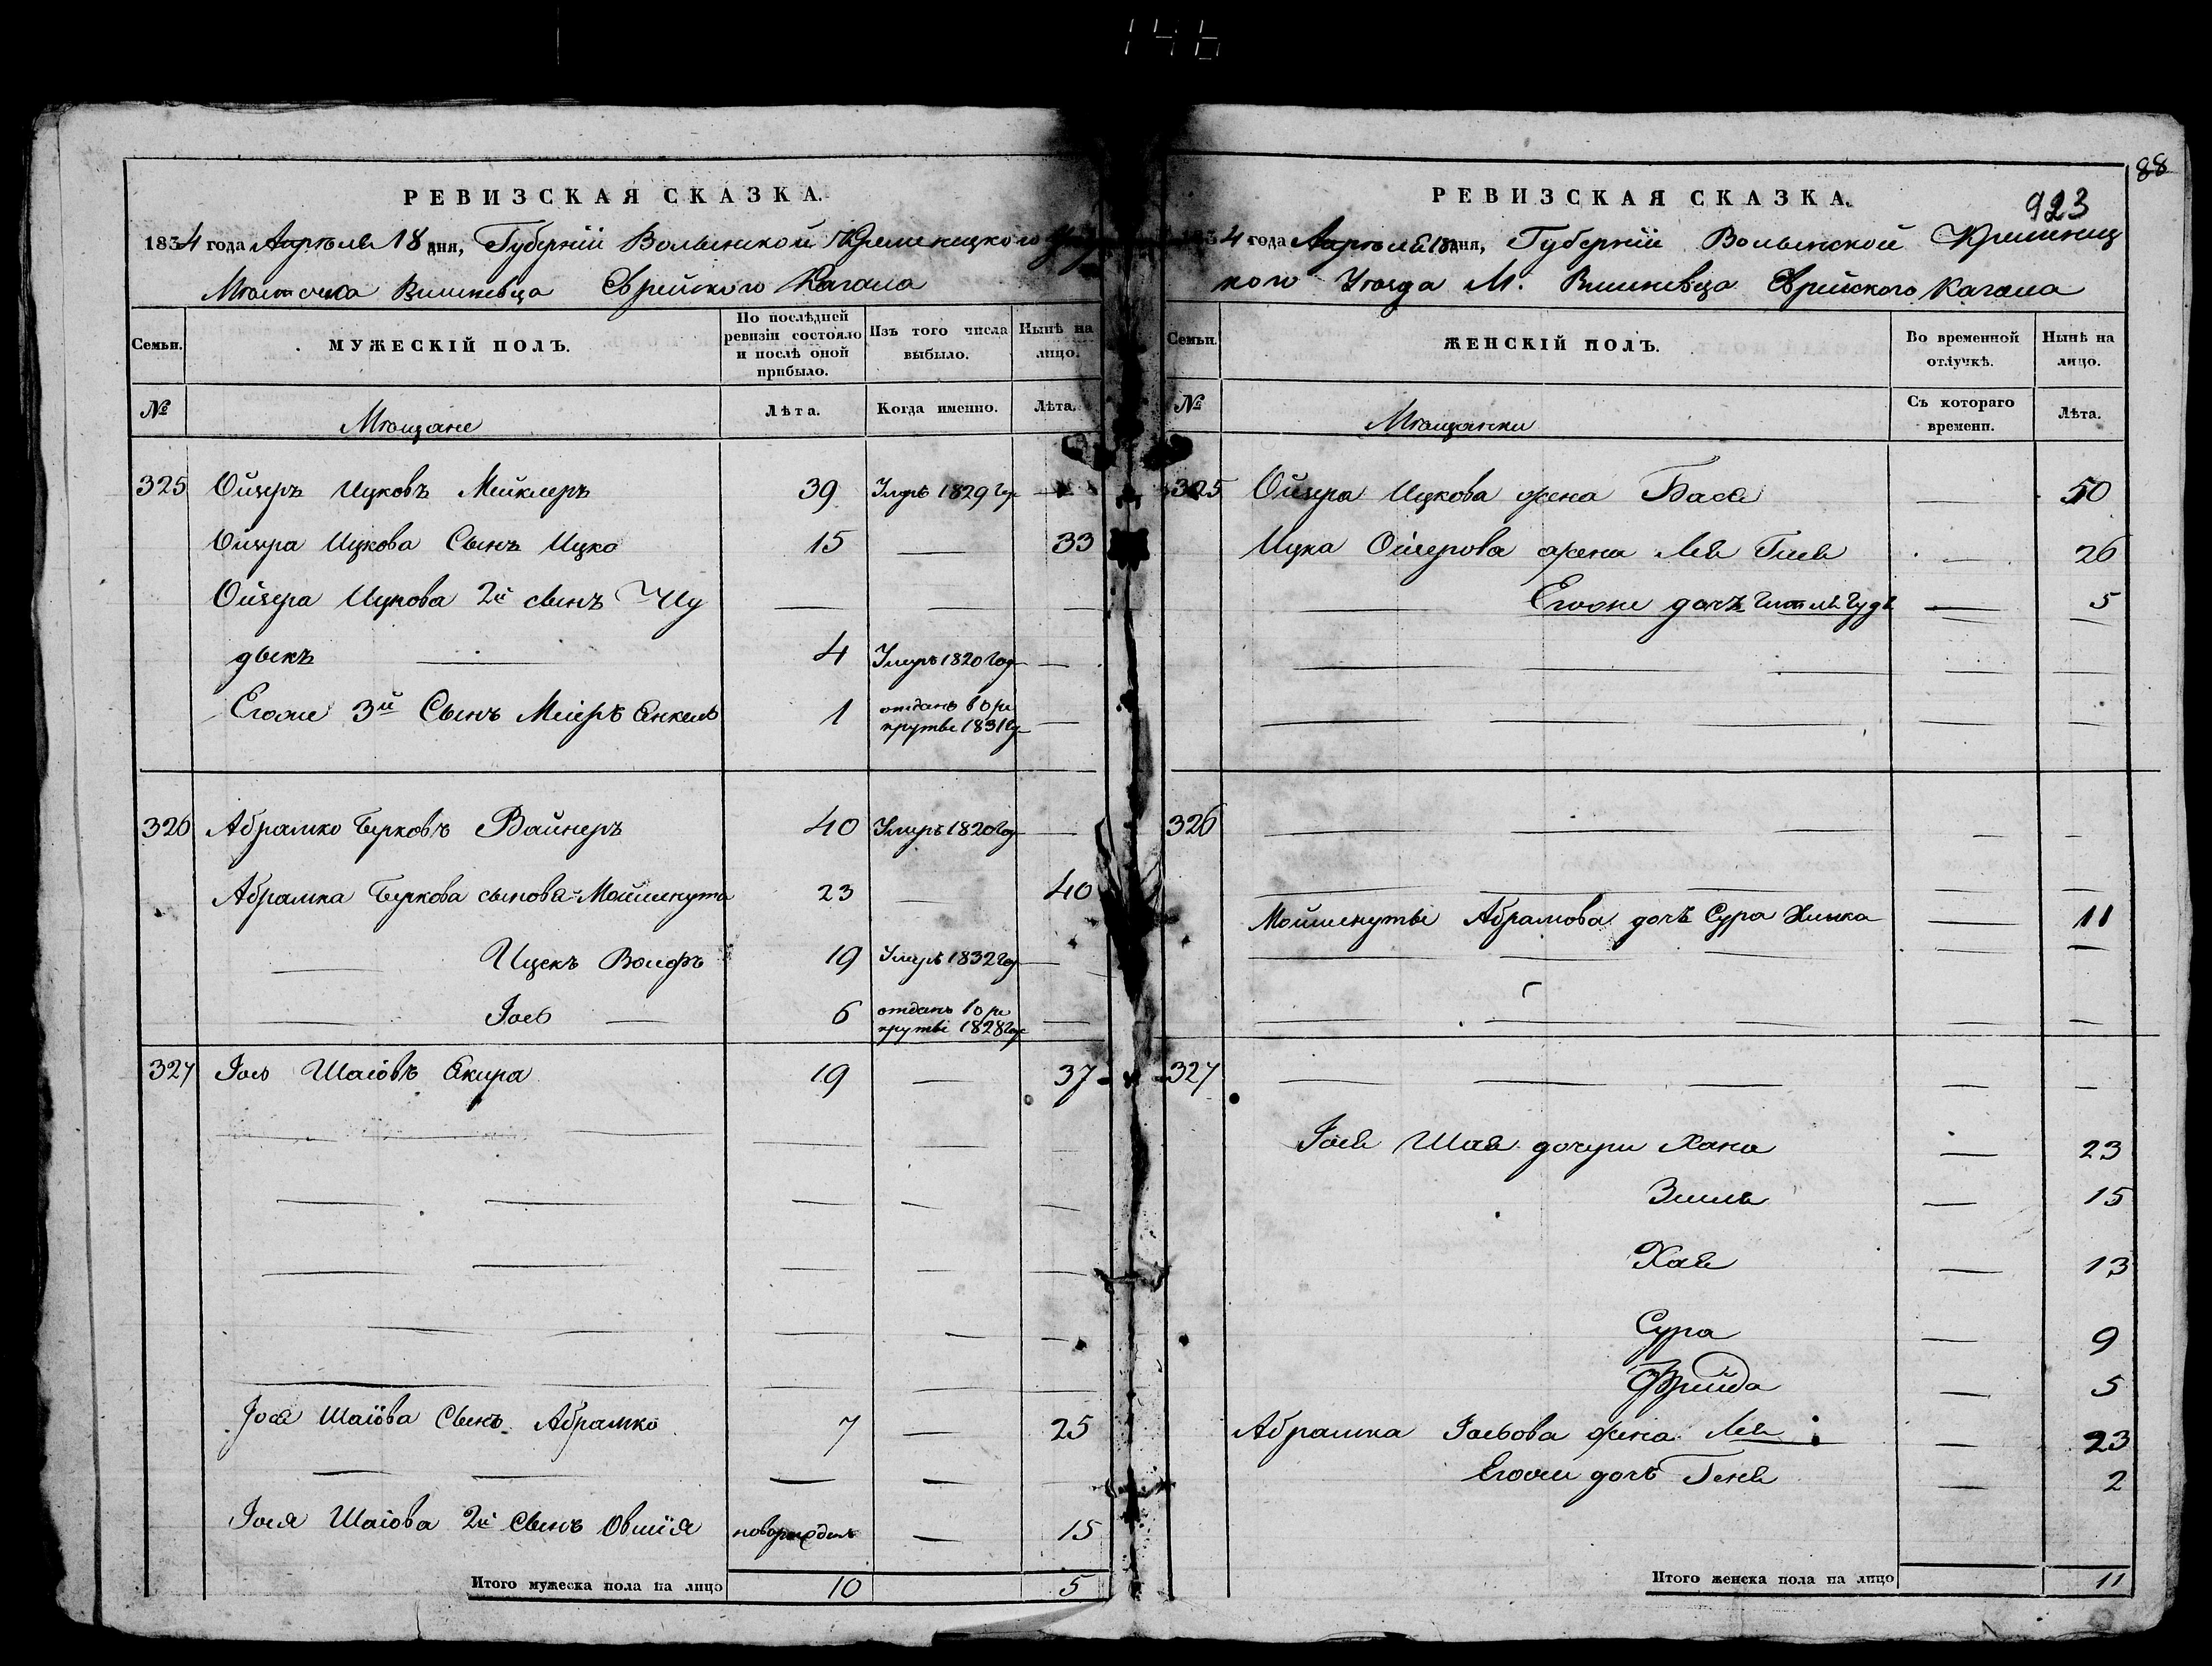 146
88
923
РЕВИЗСКАЯ СКАЗКА.
1834 года Апрѣля 18 дня, Губерніи Волынской Кременецкого
Мѣстечка Вишневца Еврейского Кагала
Семьи.
МУЖЕСКІЙ ПОЛЪ.
По послѣдней ревизіи состояло и послѣ оной прибыло.
Изъ того числа выбыло.
Нынѣ на лицо.
№
Мѣщане
Лѣта.
Когда именно.
Лѣта.
325 Ойзеръ Ицковъ Мейклеръ 39 Умръ 1829 —
Ойзера Ицкова Сынъ Ицко 15 — 33
Ойзера Ицкова 2й сынъ Иу — — —
дыкъ — 4 Умеръ 1820 год —
Егоже 3й Сынъ Меіеръ Янкель 1 отданъ в ре —
круты 1831
326 Абрамко Берковъ Вайнеръ 40 Умеръ 1820 год —
Абрамка Беркова сыновья Мойше 23 — 40
— Ицекъ Волфъ 19 Умеръ 1832 год —
— Іось — 6 отданъ в ре —
круты 1828
327 Іось Шаіовъ 19 — 37
Іося Шаіова Сынъ Абрамко 7 — 25
Іося Шаіова 2й Сынъ Овшія новорожден — 15
Итого мужеска пола на лицо 10 5
РЕВИЗСКАЯ СКАЗКА.
1834 года Апрѣля 18 дня, Губерніи Волынской Кременец
кого Уѣзда М. Вишневца Еврейского Кагала
Семьи.
ЖЕНСКІЙ ПОЛЪ.
Во временной отлучкѣ.
Нынѣ на лицо.
№
Мѣщанки
Съ котораго времени.
Лѣта.
325 Ойзера Ицкова жена Бася — 50
Ицка Ойзерова жена Лея — 26
Егоже дочь — 5
326 — — — — —
Абрамова дочь Сура — 11
327 — — — — —
Іося Шая дочери Хана — 23
— 15
Хая — 13
Сура — 9
Фрейда — 5
Абрамка Іосьова жена Лея — 23
Егоже дочь Геня — 2
Итого женска пола на лицо 11